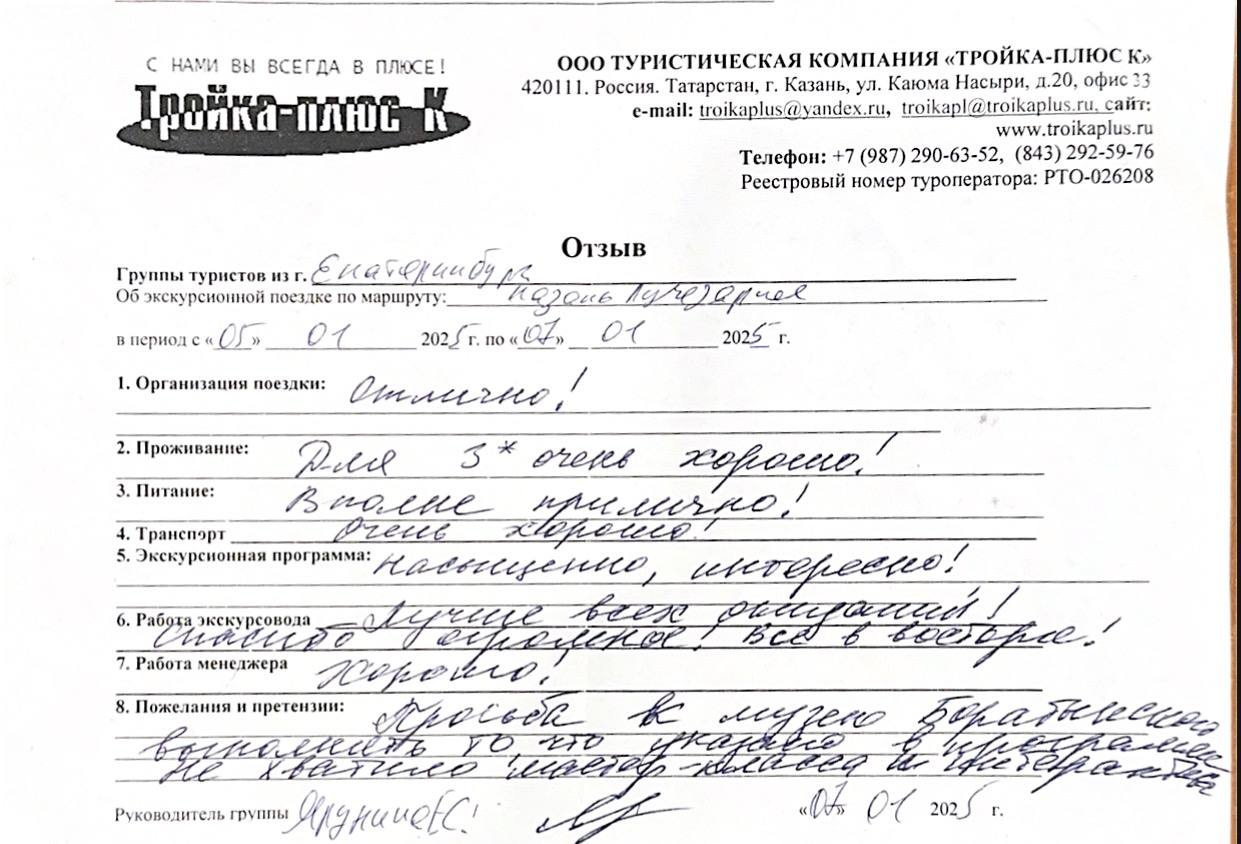 С НАМИ ВЫ ВСЕГДА В ПЛЮСЕ!
Тройка-плюс К
ООО ТУРИСТИЧЕСКАЯ КОМПАНИЯ «ТРОЙКА-ПЛЮС К»
420111. Россия. Татарстан, г. Казань, ул. Каюма Насыри, д.20, офис 33
e-mail: troikaplus@yandex.ru, troikapl@troikaplus.ru, сайт:
www.troikaplus.ru
Телефон: +7 (987) 290-63-52, (843) 292-59-76
Реестровый номер туроператора: РТО-026208
Отзыв
Группы туристов из г. Екатеринбург
Об экскурсионной поездке по маршруту: Казань Лучезарная
в период с «05» 01 2025 г. по «07» 01 2025 г.
1. Организация поездки: Отлично!
2. Проживание: Для 3* очень хорошо!
3. Питание: Вполне прилично!
4. Транспорт Очень хорошо!
5. Экскурсионная программа: Насыщенно, интересно!
6. Работа экскурсовода Лучше всех ожиданий!
Спасибо огромное! Все в восторге!
7. Работа менеджера Хорошо!
8. Пожелания и претензии: Просьба к музею Боратынского
выполнять то что указано в программе
Не хватило мастер-класса и интерактива
Руководитель группы Ярунина Е.С. «07» 01 2025 г.